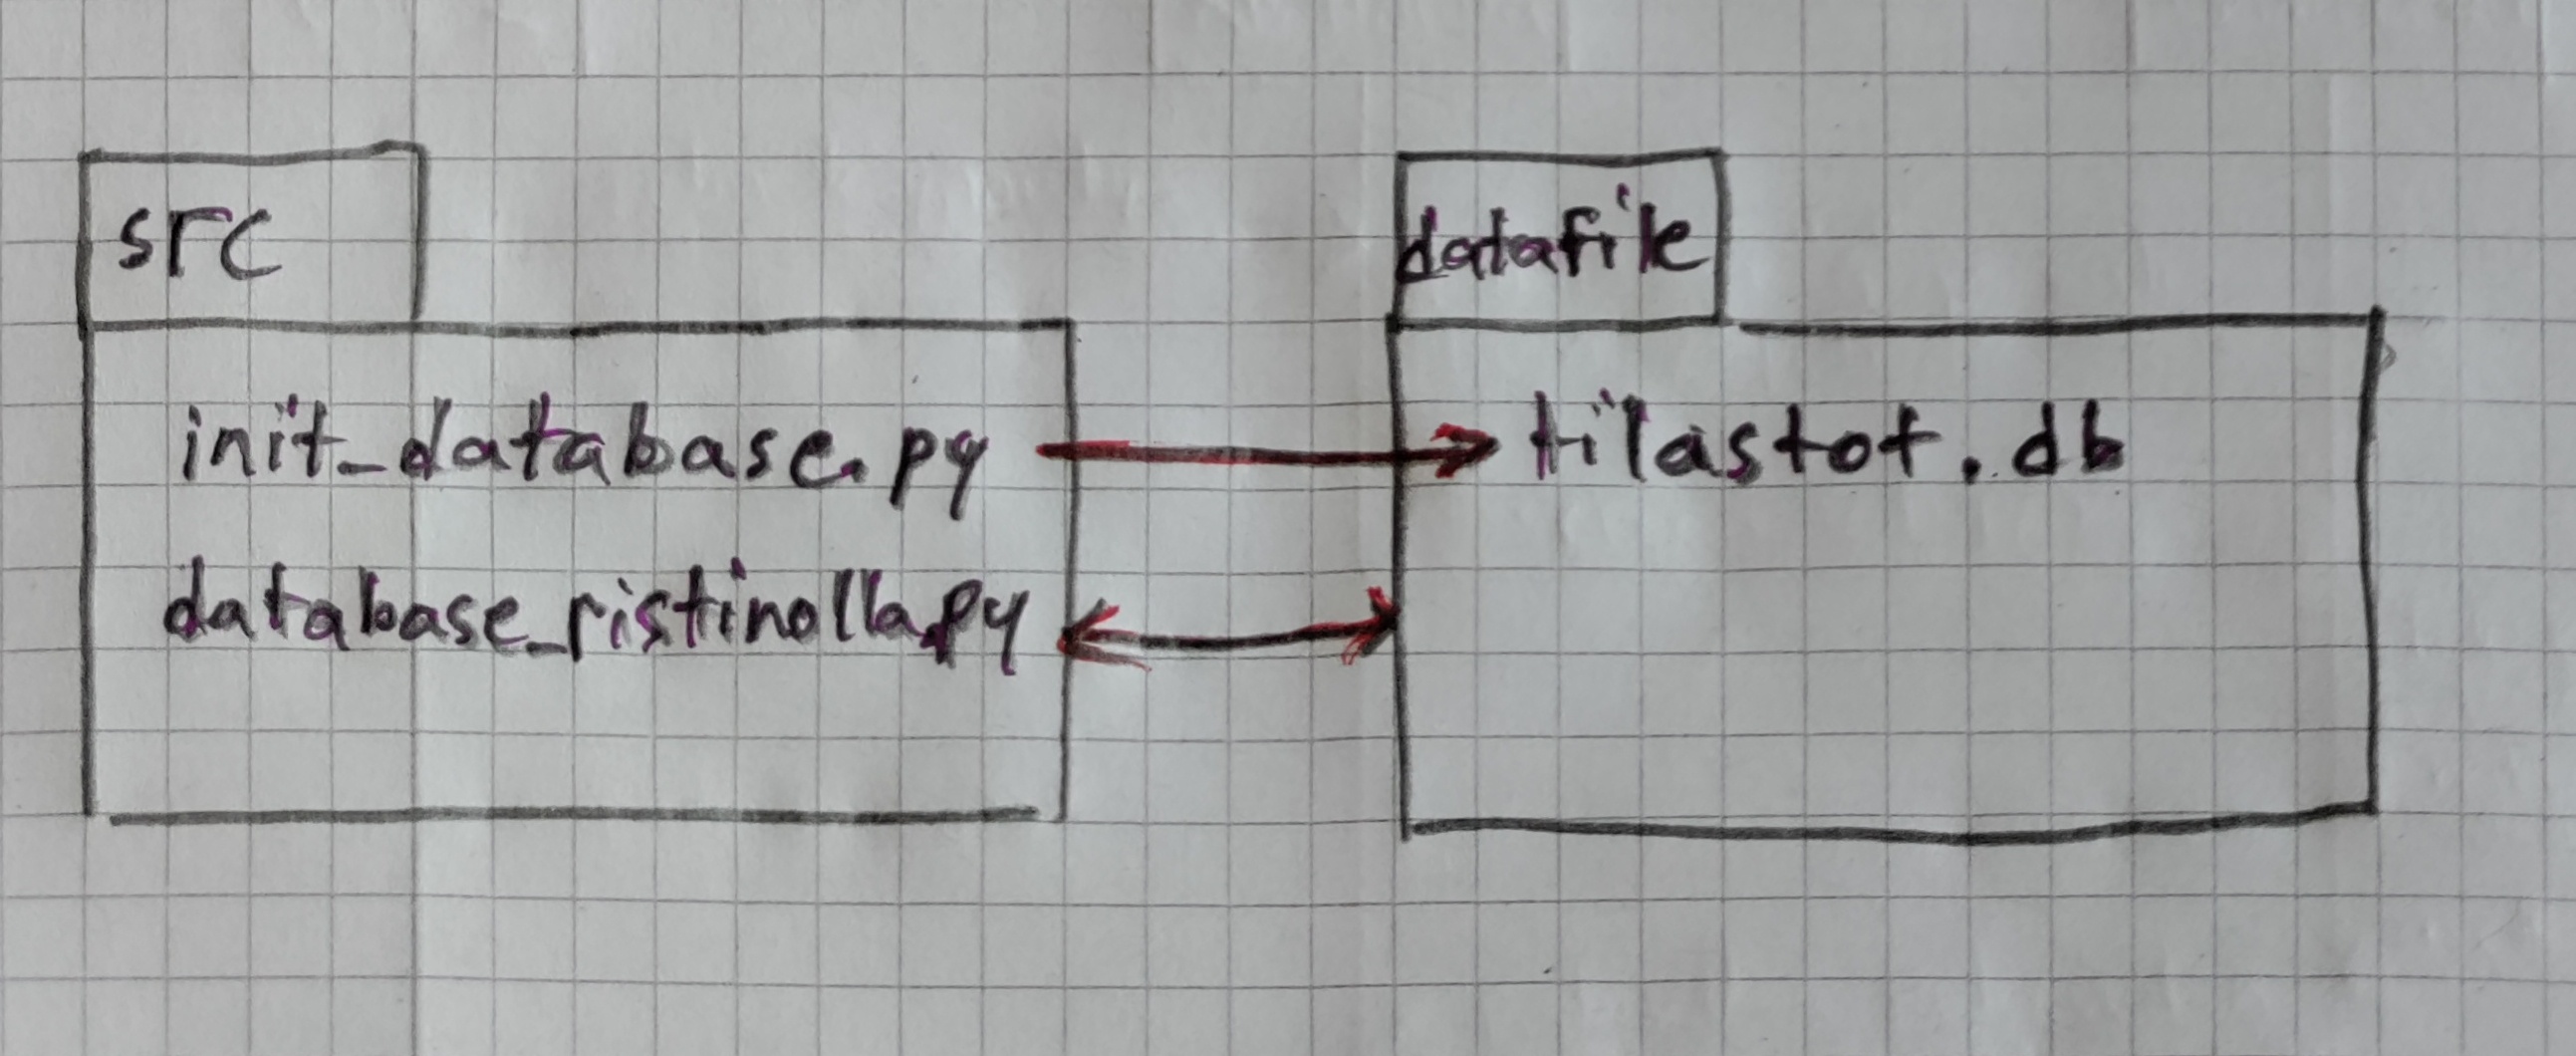 src
init_database.py
database_ristinolla.py
datafile
tilastot.db